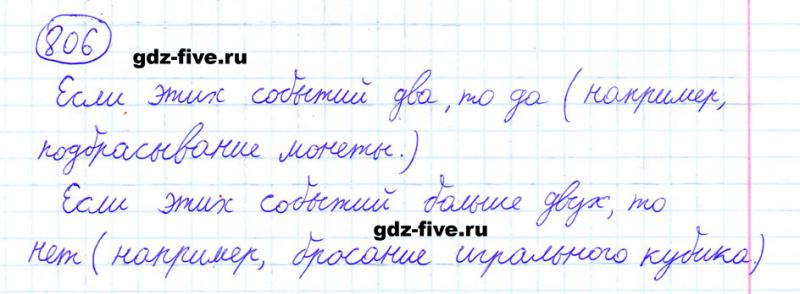 806
gdz-five.ru
Если этих событий два, то да (например,
подбрасывание монеты.)
Если этих событий больше двух, то
gdz-five.ru
нет (например, бросание игрального кубика)